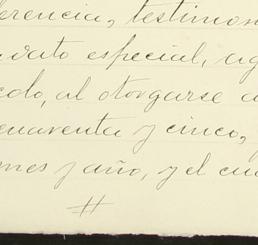 ferencia, testimon
rato especial, ag
colo, al otorgarse a
enaventa y cinco,
mes y año, y el cu
#